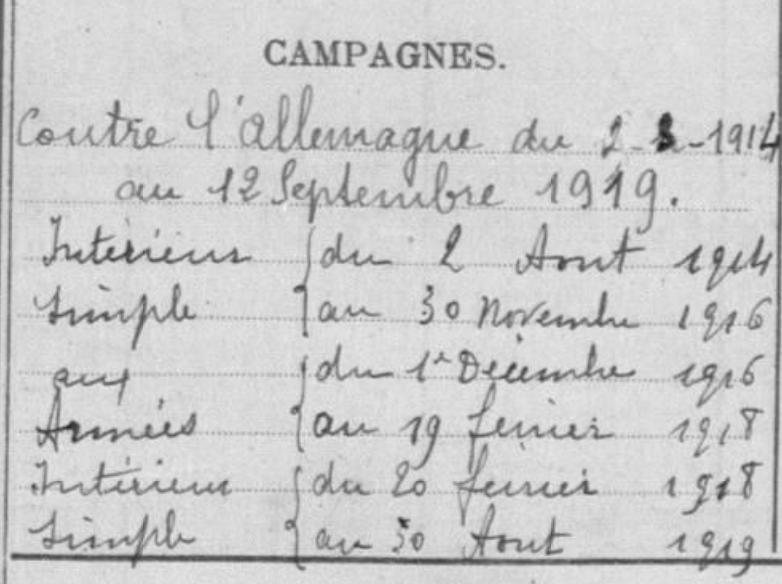 CAMPAGNES.
Contre l'Allemagne du 2-8-1914
au 12 Septembre 1919.
Intérieur { du 2 Aout 1914
Simple } au 30 Novembre 1916
aux { du 1er Décembre 1916
Armées } au 19 fevrier 1918
Intérieur { du 20 fevrier 1918
Simple } au 30 Aout 1919